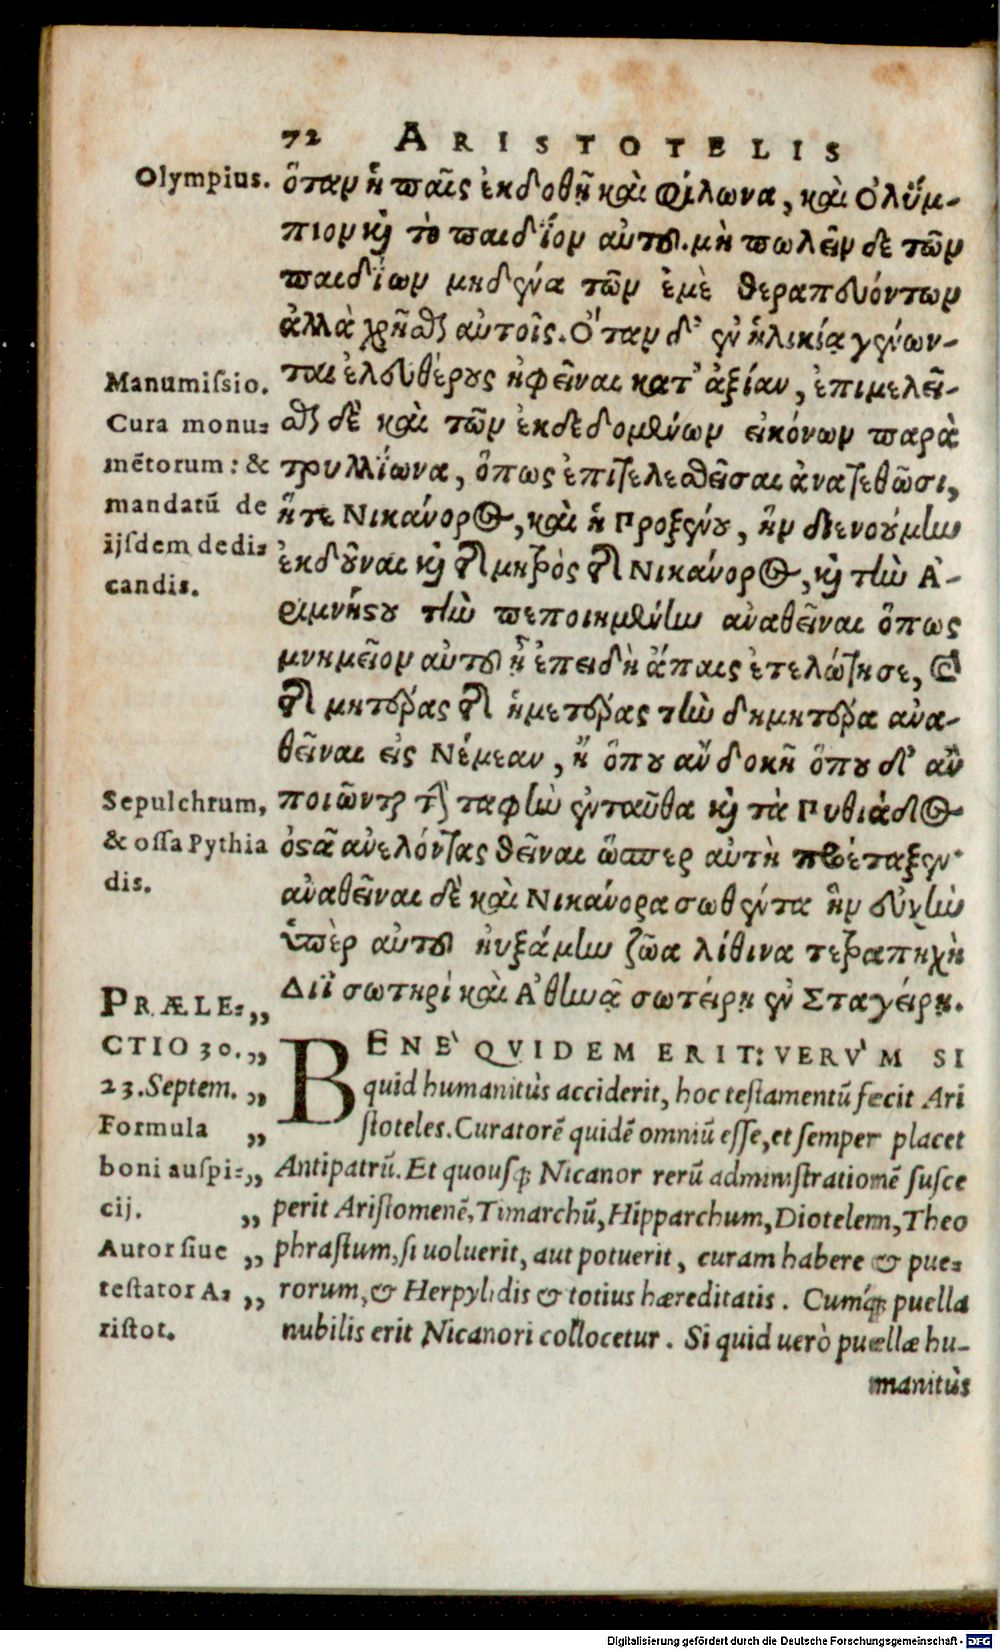 72 ARISTOTELIS
Olympius.
ὅταν ἡ παῖς ἐκδοθῇ καὶ Φίλωνα, καὶ Ὀλύμ-
πιον κὶ τὸ παιδίον αὐτοῦ. μὴ πωλεῖν δε τῶν
παιδίων μηδένα τῶν ἐμὲ θεραπευόντων
ἀλλὰ χρῆσθζ αὐτοῖς. Ὅταν δ' ἐν ἡλικίᾳ γένων-
ται ἐλευθέρους ἠφεῖναι κατ' ἀξίαν, ἐπιμελεῖ-
σθζ δὲ καὶ τῶν ἐκδεδομένων εἰκόνων παρὰ
τρυλλίωνα, ὅπως ἐπιτελεσθεῖσαι ἀνατεθῶσι,
ἥτε Νικάνορος, καὶ ἡ Προξένου, ἣν διενούμην
ἐκδοῦναι κὶ τῆς μητρὸς τῆς Νικάνορος, κὶ τὴν Ἀ-
ριμνήστου τὴν πεποιημένην ἀναθεῖναι ὅπως
μνημεῖον αὐτοῦ ᾖ ἐπειδὴ ἄπαις ἐτελεύτησε, καὶ
τῆς μητέρας τῆς ἡμετέρας τὴν δημητέρα ἀνα-
θεῖναι εἰς Νέμεαν, ἢ ὅπου ἂν δοκῇ ὅπου δ' ἂν
ποιῶνται τὴν ταφὴν ἐνταῦθα κὶ τὰ Πυθιάδος
ὀστᾶ ἀνελόντας θεῖναι ὥσπερ αὐτὴ προέταξεν·
ἀναθεῖναι δὲ καὶ Νικάνορα σωθέντα ἣν εὐχὴν
ὑπὲρ αὐτοῦ ηὐξάμην ζῶα λίθινα τετραπήχη
Διῒ σωτηρί καὶ Ἀθηνᾷ σωτείρῃ ἐν Σταγείρῃ.
Manumissio.
Cura monu-
mētorum: &
mandatū de
ijsdem dedi-
candis.
Sepulchrum,
& ossa Pythia
dis.
PRÆLE- „
CTIO 30. „
23. Septem. „
Formula „
boni auspi- „
cij. „
Autor siue „
testator A- „
ristot.
BENE QVIDEM ERIT: VERVM SI
quid humanitùs acciderit, hoc testamentū fecit Ari
stoteles. Curatorē quidē omniū esse, et semper placet
Antipatrū. Et quousq; Nicanor rerū administrationē susce
perit Aristomenē, Timarchū, Hipparchum, Diotelem, Theo
phrastum, si uoluerit, aut potuerit, curam habere & pue-
rorum, & Herpylidis & totius hæreditatis. Cumq́; puella
nubilis erit Nicanori collocetur. Si quid uerò puellæ hu-
manitùs
Digitalisierung gefördert durch die Deutsche Forschungsgemeinschaft - DFG